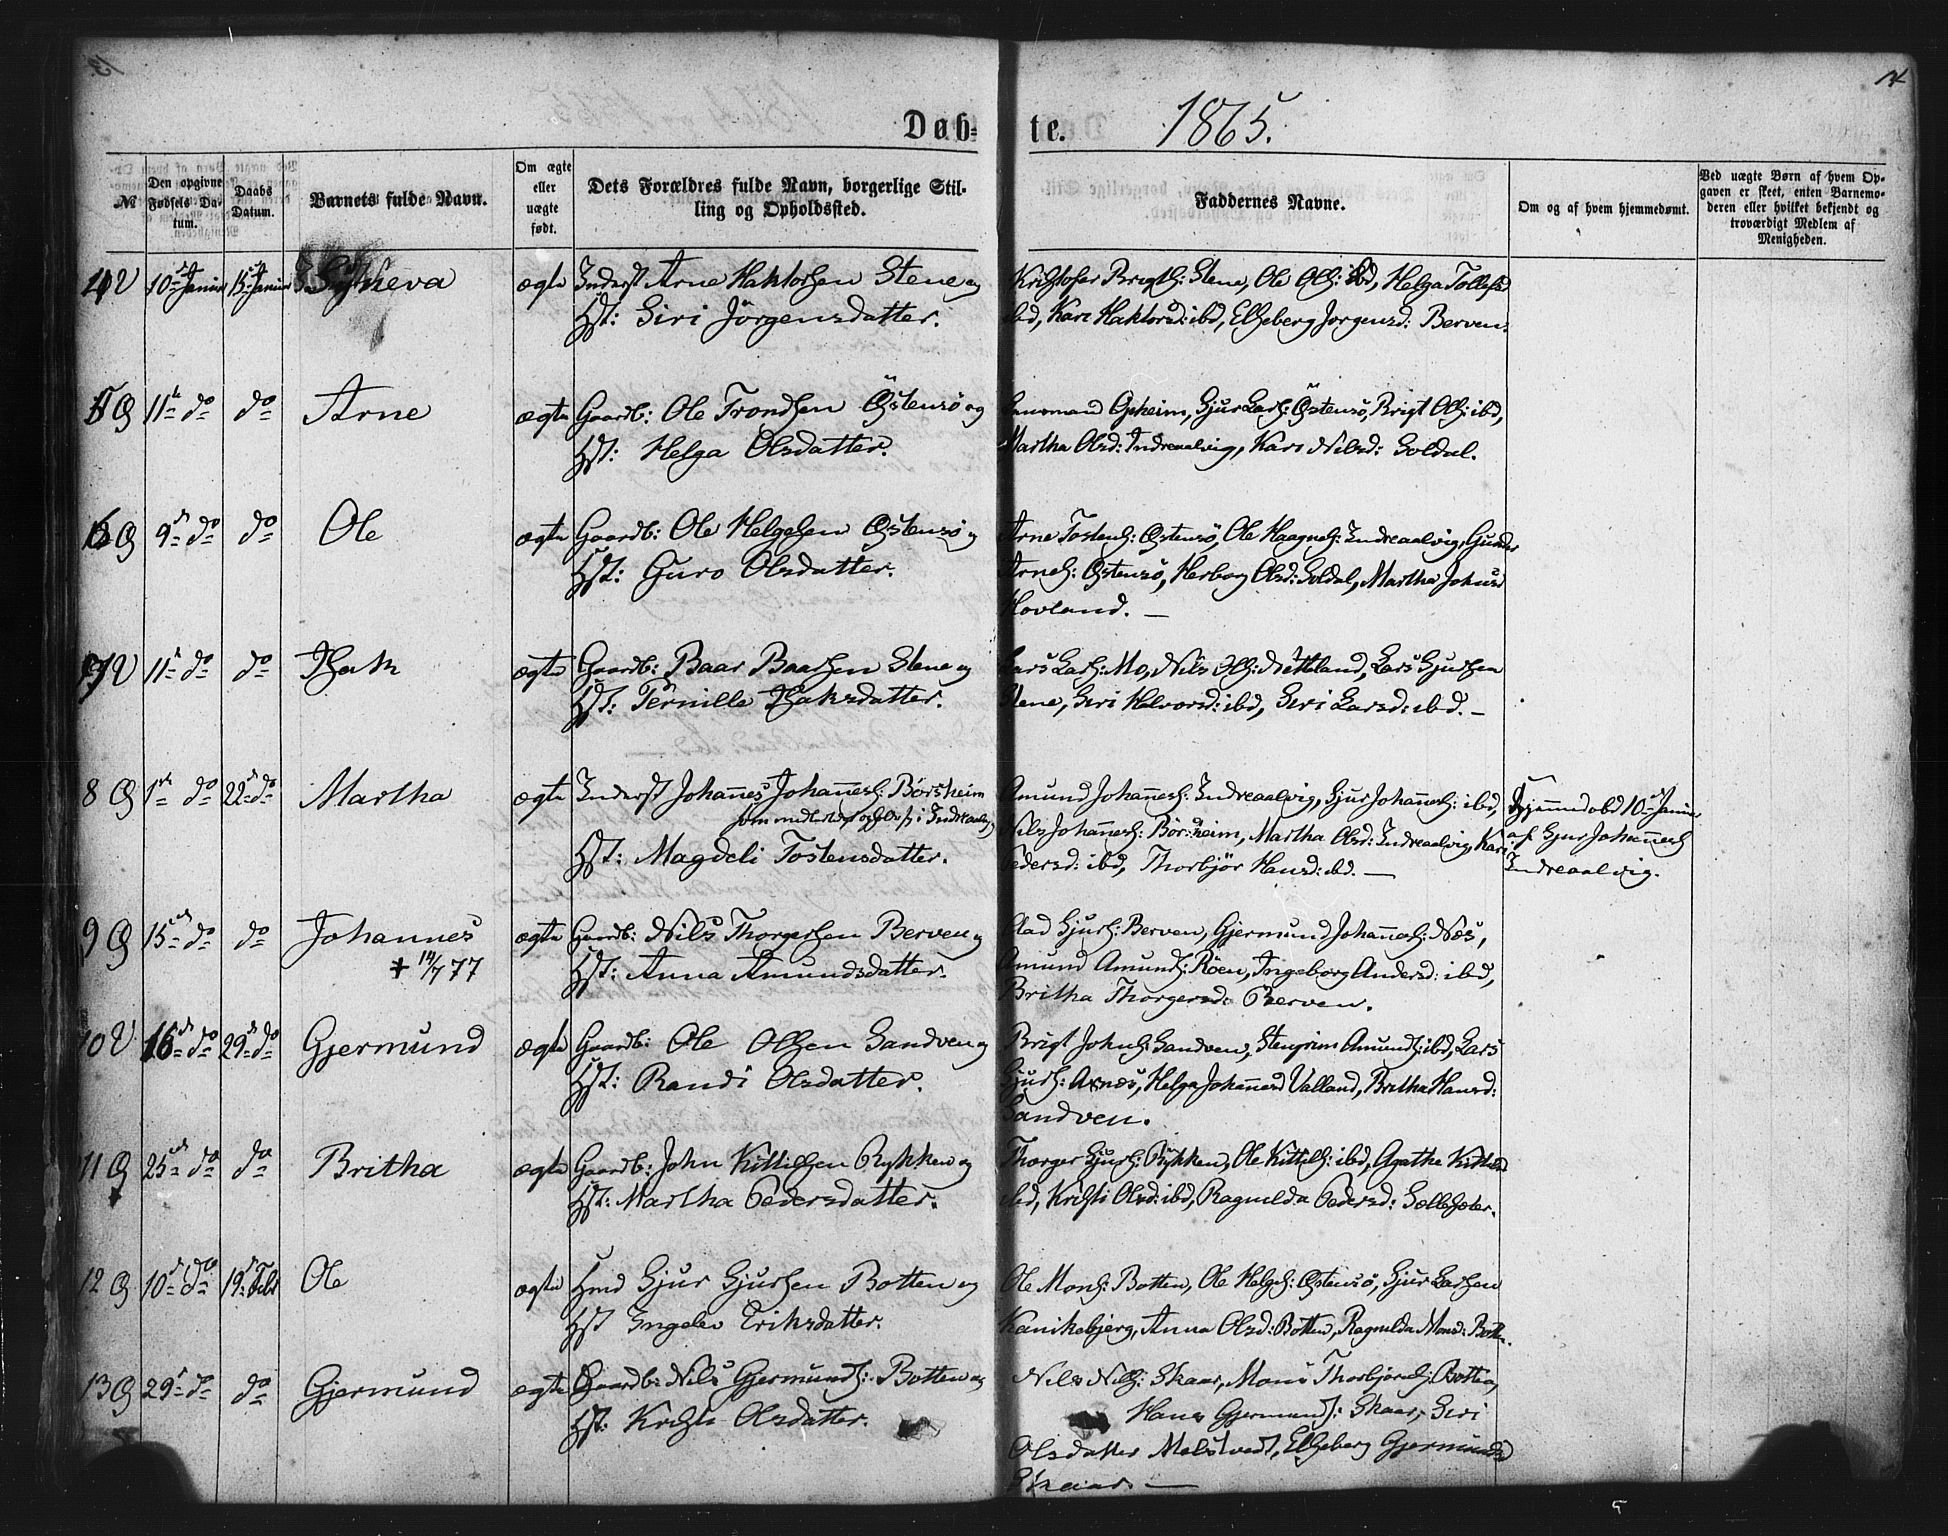 14
Døb=
te. 1865.
№
Den opgivne Fødsels Datum.
Daabs Datum.
Barnets fulde Navn.
Om ægte eller uægte født.
Dets Forældres fulde Navn, borgerlige Stilling og Opholdssted.
Faddernes Navne.
Om og af hvem hjemmedømt.
Ved uægte Børn af hvem Opgaven er skeet, enten Barnemoderen eller hvilket bekjendt og troværdigt Medlem af Menigheden.
4 V 10de Januar 15de Januar Synneva ægte Inderst Arne Haktorsen Stene og
Hst: Siri Jörgensdatter.
Kristofer Brigths: Stene, Ole Ols: ibd, Helga Tollefsd
ibd, Kari Haktorsd: ibd, Elseberg Jorgensd: Berven.
5 Ø 11te do do Arne ægte Gaardb: Ole Trondsen Östensö og
Hst: Helga Olsdatter.
Lensmand Opheim, Sjur Lars: Östensö, Brigt Ols: ibd,
Martha Olsd: Indreaalvig, Kari Nilsd: Soldal.
6 Ø 9de do do Ole ægte Gaardb: Ole Helgesen Östensö og
Hst: Guro Olsdatter.
Arne Tostens: Östensö, Ole Haagnes: Indreaalvig, Gunder
Arnes: Östensö, Herborg Olsd: Soldal, Martha Johnsd
Hovland. —
7 V 11te do do Isak ægte Gaardb: Baar Baarsen Stene og
Hst: Pernille Isaksdatter.
Lars Lars: Mo, Nils Ols: Nettland, Lars Sjursen
Stene, Siri Halvorsd: ibd, Siri Larsd: ibd. —
8 Ø 1ste do 22de do Martha ægte Inderst Johannes Johannes: Börsheim
som midlertid opholder sig i Indreaalvig
Hst: Magdeli Tostensdatter.
Amund Johannes: Indreaalvig, Sjur Johannes: ibd,
Nils Johannes: Börsheim, Martha Olsd: Indreaalvig, Kari
Pedersd: ibd, Thorbjör Hansd: ibd. —
Hjemmedøbt 10de Januar
af Sjur Johannes
Indreaalvig.
9 Ø 15de do do Johannes ægte Gaardb: Nils Thorgersen Berven og
+ 14/7 77
Hst: Anna Amundsdatter.
Elad Sjurs: Berven, Gjermund Johannes: Næs,
Amund Amunds: Röen, Ingeborg Andersd: ibd,
Britha Thorgersd: Berven.
10 V 16de do 29de do Gjermund ægte Gaardb: Ole Olsen Sandven og
Hst: Randi Olsdatter.
Brigt Johns: Sandven, Stengrim Amunds: ibd, Lars
Sjurs: Axnæs, Helga Johannesd Valland, Britha Hansd:
Sandven.
11 Ø 25de do do Britha ægte Gaardb: John Kittilsen Rykken og
Hst: Martha Pedersdatter.
Thorger Sjurs: Rykken, Ole Kittils: ibd, Agatha Kittilsd
ibd, Kristi Olsd: ibd, Ragnilda Pedersd:
12 Ø 10de do 19de Febr Ole ægte Hmd Sjur Sjursen Botten og
Hst Ingelev Eriksdatter.
Ole Mons: Botten, Ole Helges: Östensö, Sjur Larsen
Kanikebjerg, Anna Olsd: Botten, Ragnilda Monsd: Botten.
13 Ø 29de do do Gjermund ægte Gaardb: Nils Gjermunds: Botten og
Hst: Kristi Olsdatter.
Nils Nils: Skaar, Mons Thorbjörns: Botten,
Hans Gjermunds: Skaar, Siri
Olsdatter Melstvedt, Elseberg Gjermundsd
Skaar. —